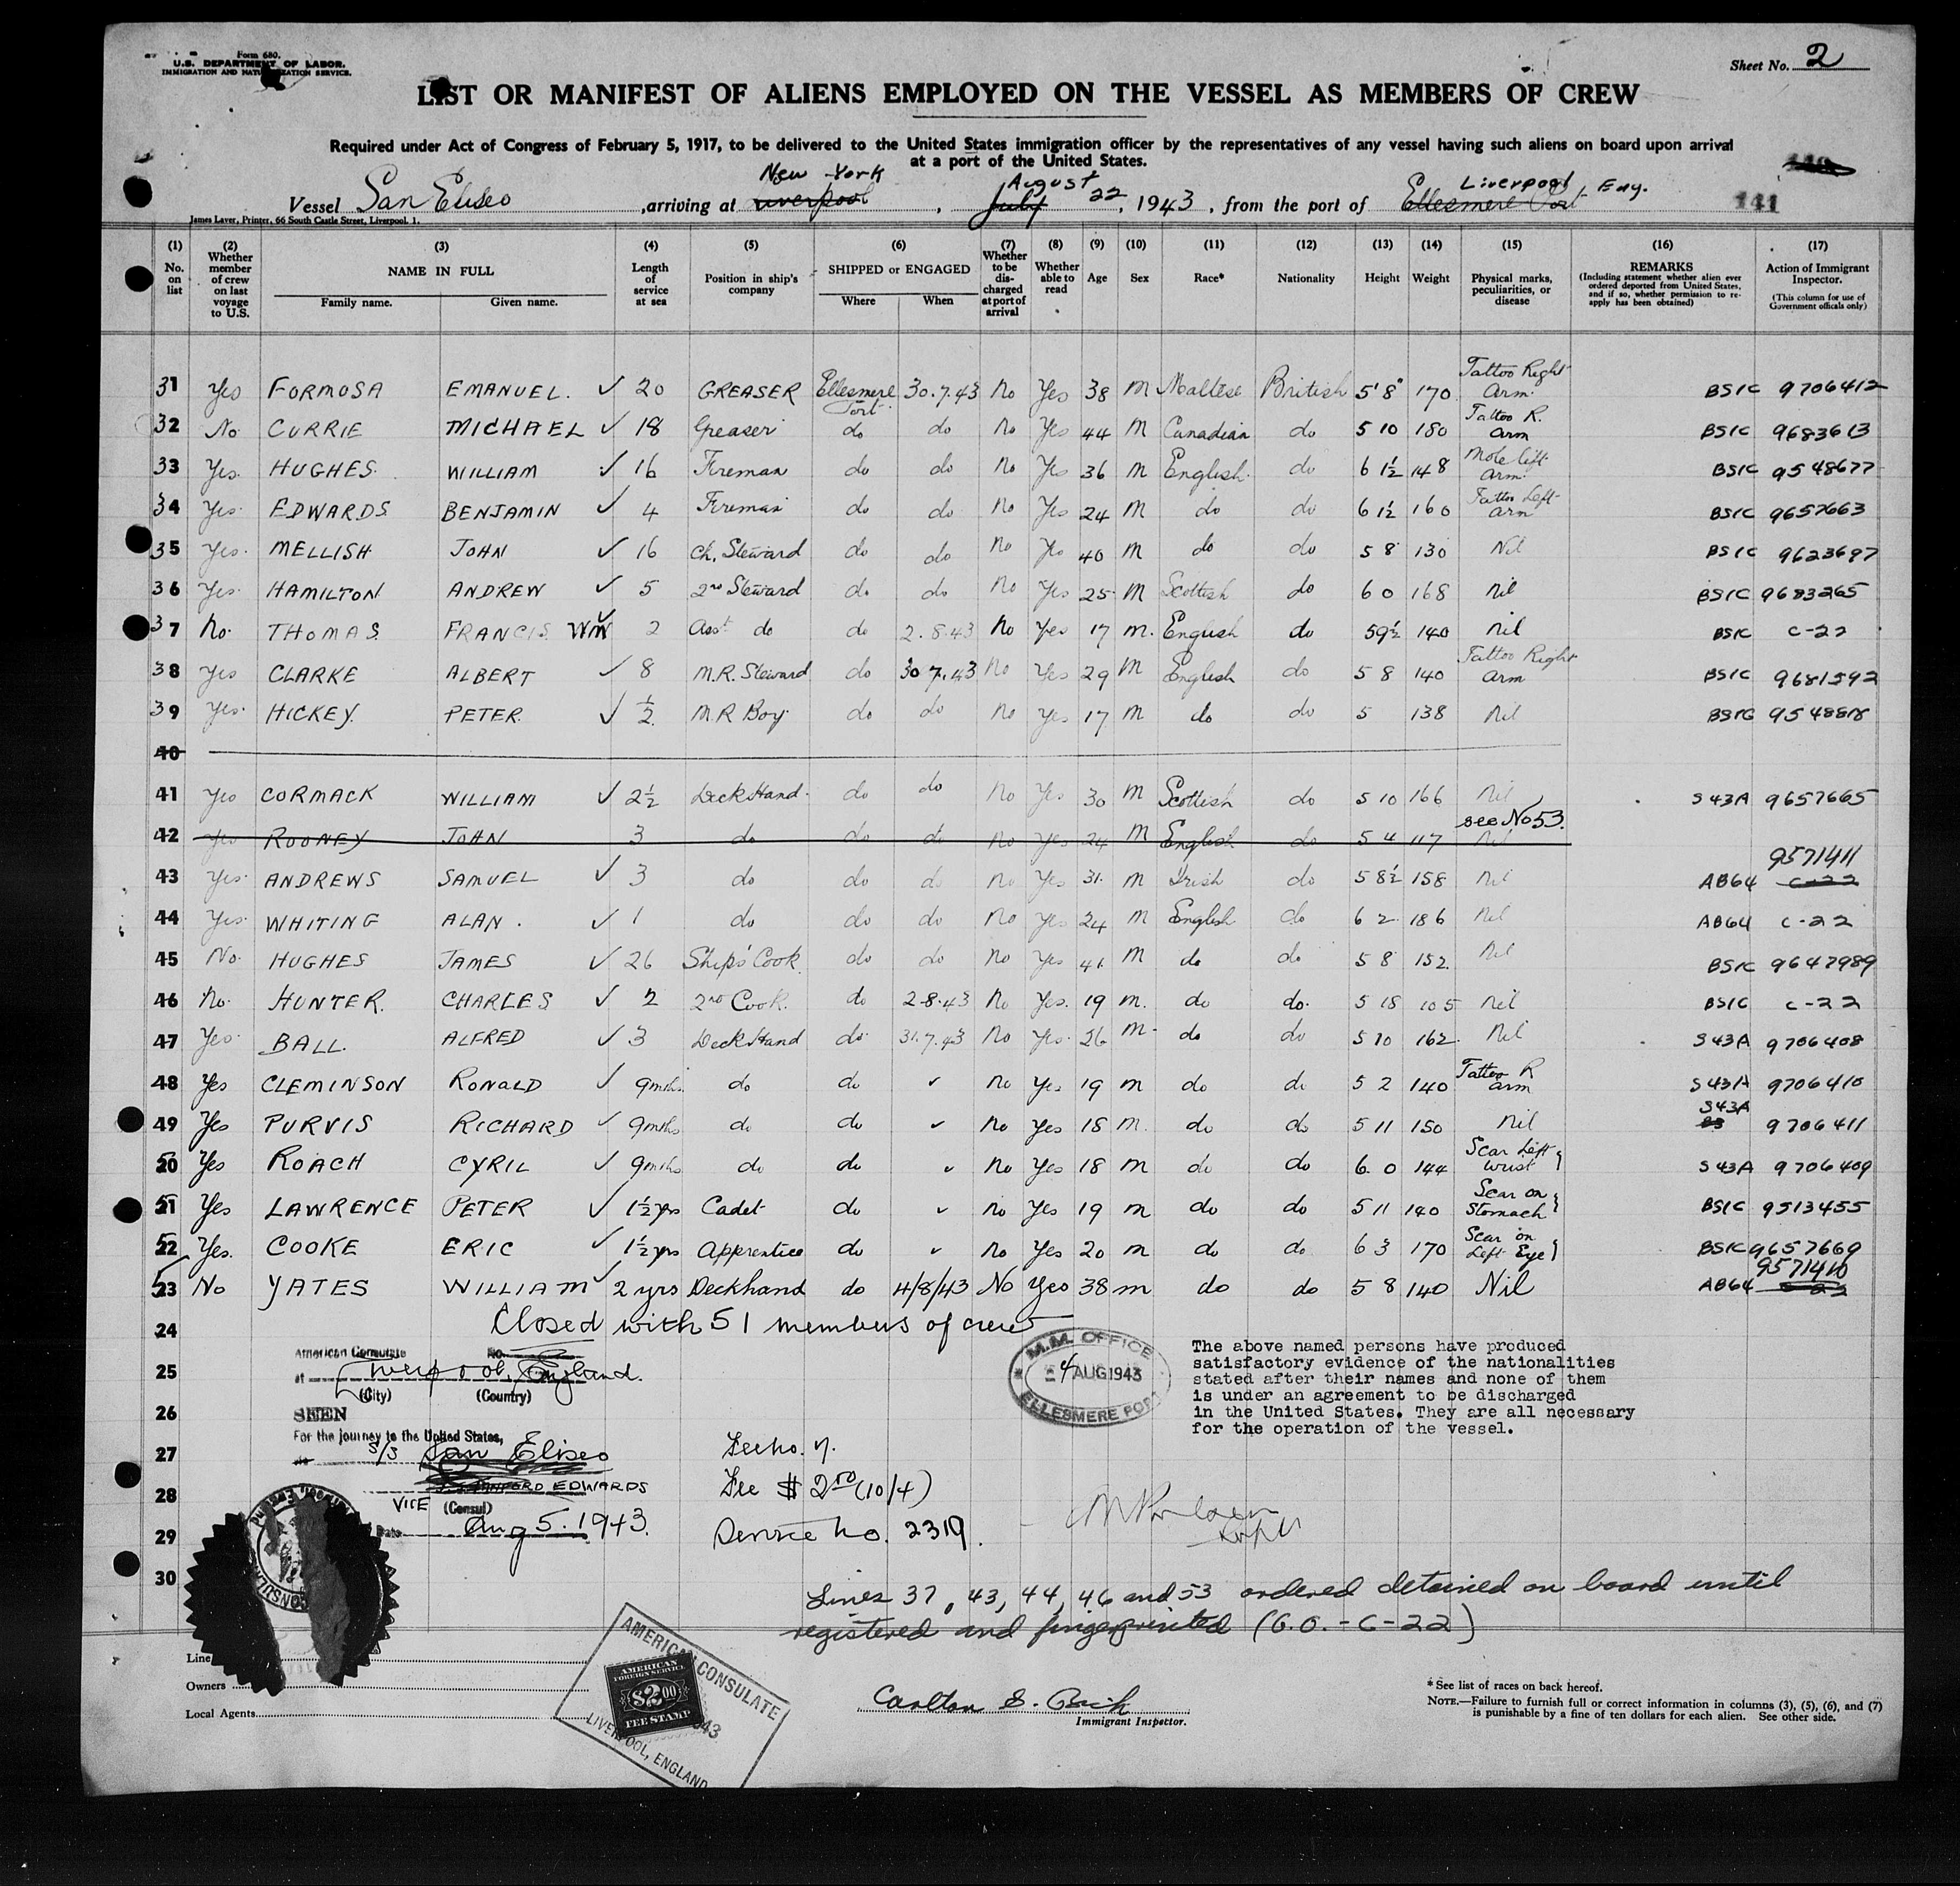 Form 680.
U.S. DEPARTMENT OF LABOR.
IMMIGRATION AND NATURALIZATION SERVICE.
Sheet No. 2
LIST OR MANIFEST OF ALIENS EMPLOYED ON THE VESSEL AS MEMBERS OF CREW
Required under Act of Congress of February 5, 1917, to be delivered to the United States immigration officer by the representatives of any vessel having such aliens on board upon arrival
at a port of the United States.
New York August Liverpool Eng.
Vessel San Eliseo, arriving at Liverpool, July 22, 1943, from the port of Ellesmere Port 141
James Laver, Printer, 66 South Castle Street, Liverpool, 1.
(1) No. on list
(2) Whether member of crew on last voyage to U.S.
(3) NAME IN FULL Family name. Given name.
(4) Length of service at sea
(5) Position in ship's company
(6) SHIPPED or ENGAGED Where When
(7) Whether to be discharged at port of arrival
(8) Whether able to read
(9) Age
(10) Sex
(11) Race*
(12) Nationality
(13) Height
(14) Weight
(15) Physical marks, peculiarities, or disease
(16) REMARKS (Including statement whether alien ever ordered deported from United States, and if so, whether permission to re-apply has been obtained)
(17) Action of Immigrant Inspector. (This column for use of Government officials only)
31 Yes FORMOSA EMANUEL. ✓ 20 GREASER Ellesmere Port 30.7.43 No Yes 38 M Maltese British 5'8" 170 Tattoo Right Arm. BSIC 9706412
32 No CURRIE MICHAEL ✓ 18 Greaser do do No Yes 44 M Canadian do 5 10 180 Tattoo R. arm BSIC 9683613
33 Yes. HUGHES WILLIAM ✓ 16 Fireman do do No Yes 36 M English. do 6 1½ 148 Mole left arm. BSIC 9548677
34 Yes. EDWARDS BENJAMIN ✓ 4 Fireman do do No Yes 24 M do do 6 1½ 160 Tattoo Left arm BSIC 9657663
35 Yes. MELLISH JOHN ✓ 16 Ch. Steward do do No Yes 40 M do do 5 8 130 Nil BSIC 9623697
36 Yes. HAMILTON ANDREW ✓ 5 2nd Steward do do No Yes 25 M Scottish do 6 0 168 nil BSIC 9683265
37 No. THOMAS FRANCIS WM ✓ 2 Asst do do 2.8.43 No Yes 17 m. English do 5 9½ 140 nil BSIC C-22
38 Yes CLARKE ALBERT ✓ 8 M.R. Steward do 30 7.43 No Yes 29 M English do 5 8 140 Tattoo Right arm BSIC 9681592
39 Yes. HICKEY. PETER. ✓ ½ M.R Boy. do do No Yes 17 M do do 5 138 nil BSIC 9548818
40
41 Yes CORMACK WILLIAM ✓ 2½ Deck Hand. do do No Yes 30 M Scottish do 5 10 166 nil S43A 9657665
see No 53.
42 Yes ROONEY JOHN 3 do do do No Yes 24 M English do 5 4 117 Nil
9571411
43 Yes. ANDREWS SAMUEL ✓ 3 do do do No Yes 31. M Irish do 5 8½ 158 Nil AB64 C-22
44 Yes. WHITING ALAN. ✓ 1 do do do No Yes 24 M English do 6 2 186 Nil AB64 C-22
45 No. HUGHES JAMES ✓ 26 Ship's Cook do do No Yes 41. M do do 5 8 152. Nil BSIC 9647989
46 No. HUNTER. CHARLES ✓ 2 2nd Cook. do 2-8-43 No Yes. 19 m. do do. 5 18 105 nil BSIC C-22
47 Yes. BALL. ALFRED ✓ 3 Deck Hand do. 31.7.43 No Yes. 26 M. do do 5 10 162. Nil S43A 9706408
48 Yes CLEMINSON RONALD ✓ 9mths. do do ✓ No Yes 19 m do do 5 2 140 Tattoo R arm S43A 9706410
S43A
49 Yes PURVIS RICHARD ✓ 9mths do do ✓ No Yes 18 m. do do 5 11 150 Nil BS 9706411
50 Yes ROACH CYRIL ✓ 9mths do do ✓ No Yes 18 m do do 6. 0 144 Scar Left wrist } S43A 9706409
51 Yes LAWRENCE PETER ✓ 1½ yrs Cadet do ✓ No Yes 19 m do do 5 11 140 Scar on Stomach } BSIC 9513455
52 Yes. COOKE ERIC ✓ 1½ yrs Apprentice do ✓ No Yes 20 m do do 6 3 170 Scar on Left Eye } BSIC 9657669
9571410
53 No YATES WILLIAM ✓ 2 yrs Deckhand do 4/8/43 No Yes 38 m do do 5 8 140 Nil AB64 C-22
24 Closed with 51 members of crew
American Consulate No.
25 at Liverpool, England.
(City) (Country)
26 SEEN
For the journey to the United States,
27 S/S San Eliseo
28 EDWARDS
VICE (Consul)
29 Date Aug 5. 1943.
30
M.M. OFFICE
4 AUG 1943
ELLESMERE PORT
The above named persons have produced
satisfactory evidence of the nationalities
stated after their names and none of them
is under an agreement to be discharged
in the United States. They are all necessary
for the operation of the vessel.
Fee $ 2.00 (10/4)
Service No. 2319.
Lines 37, 43, 44, 46 and 53 ordered detained on board until
registered and fingerprinted (G.O. - C-22)
Line
Owners
Local Agents
AMERICAN CONSULATE
LIVERPOOL, ENGLAND
AMERICAN
FOREIGN SERVICE
$2.00
FEE STAMP
Immigrant Inspector.
* See list of races on back hereof.
NOTE.—Failure to furnish full or correct information in columns (3), (5), (6), and (7)
is punishable by a fine of ten dollars for each alien. See other side.